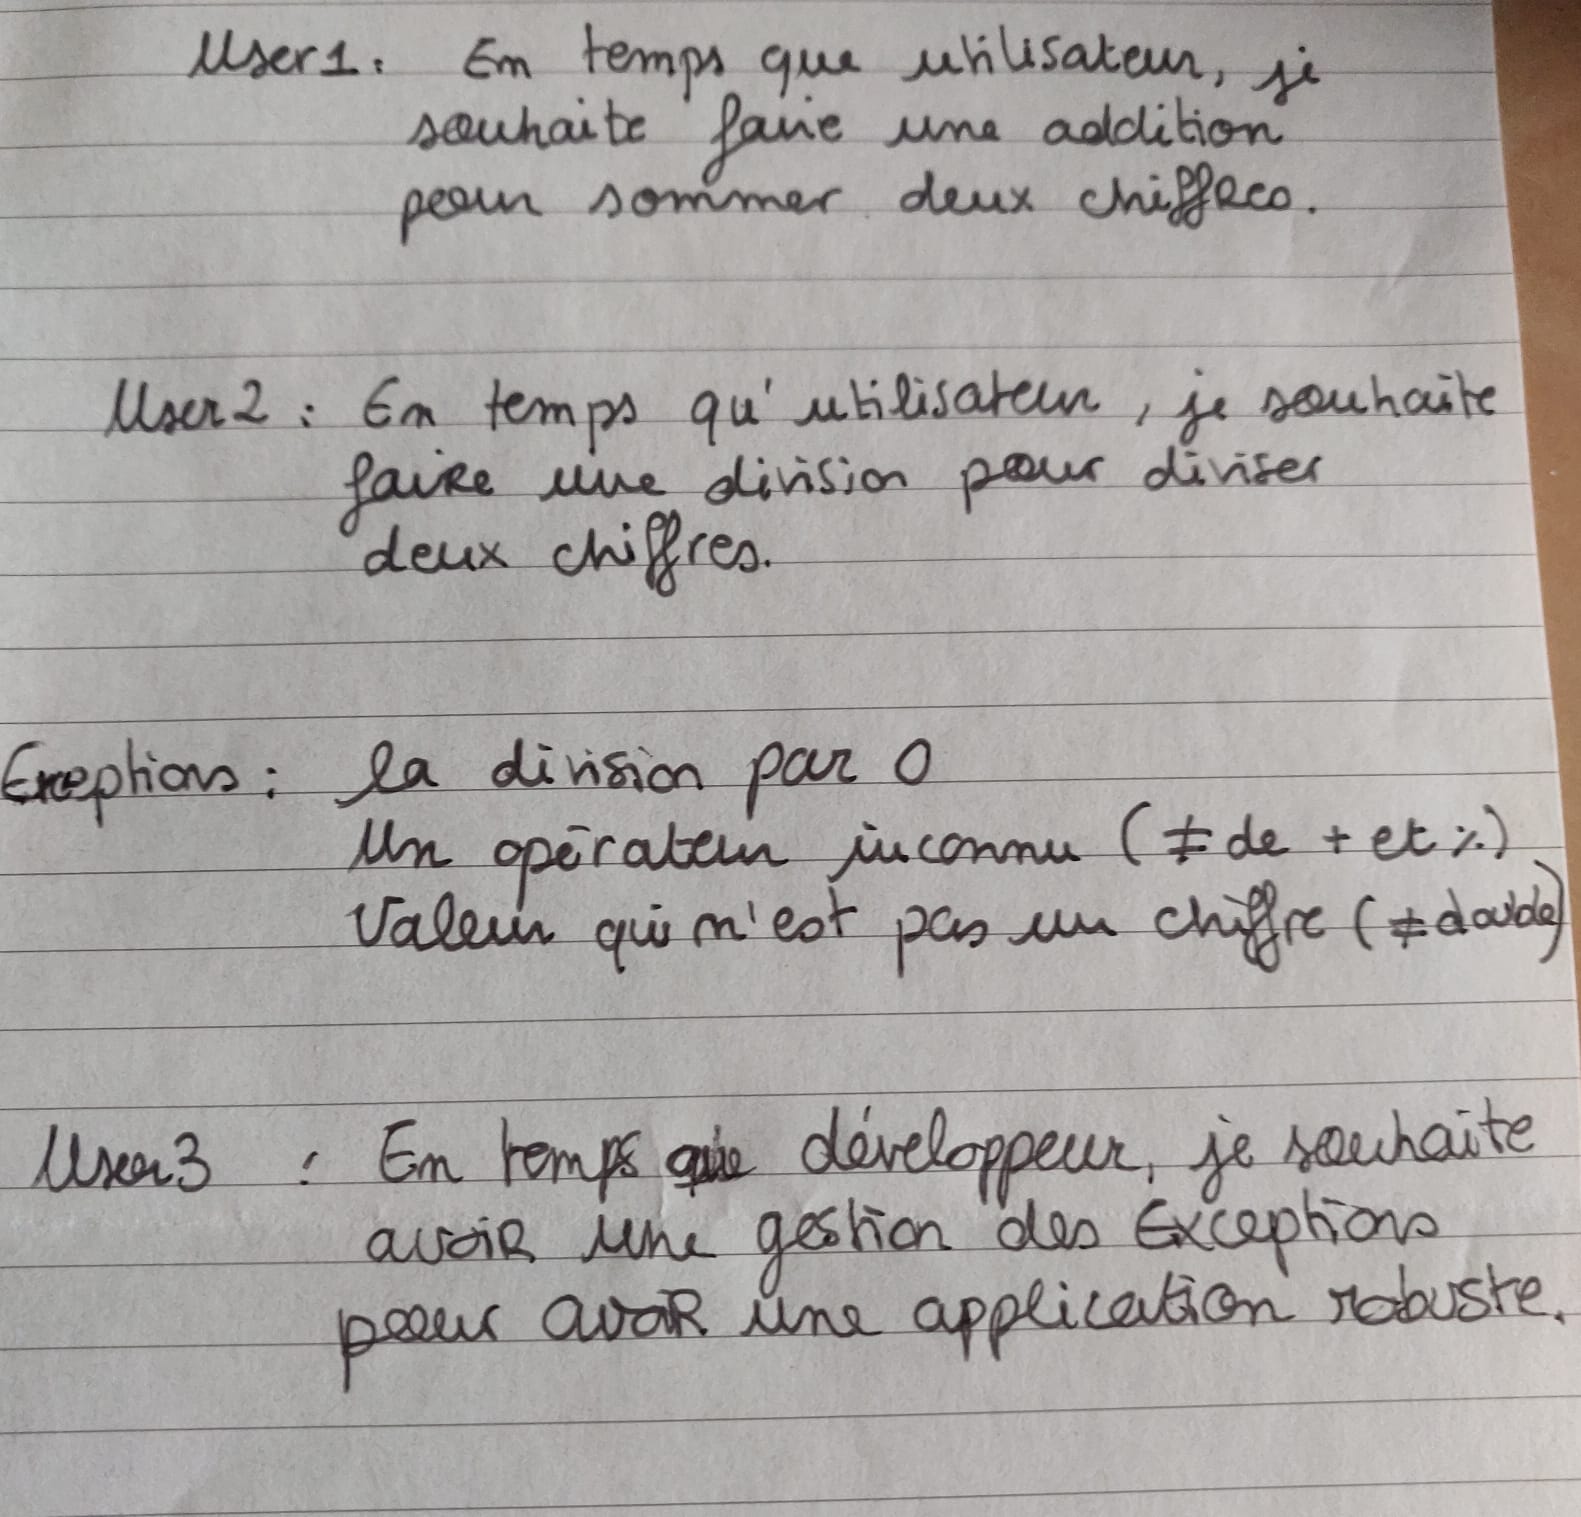 User1: En temps que utilisateur, je
souhaite faire une addition
pour sommer deux chiffres.
User2 : En temps qu'utilisateur, je souhaite
faire une division pour diviser
deux chiffres.
Exceptions : la division par 0
Un opérateur inconnu (≠ de + et %)
Valeur qui n'est pas un chiffre (≠ double)
User3 : En temps que développeur, je souhaite
avoir une gestion des Exceptions
pour avoir une application robuste.